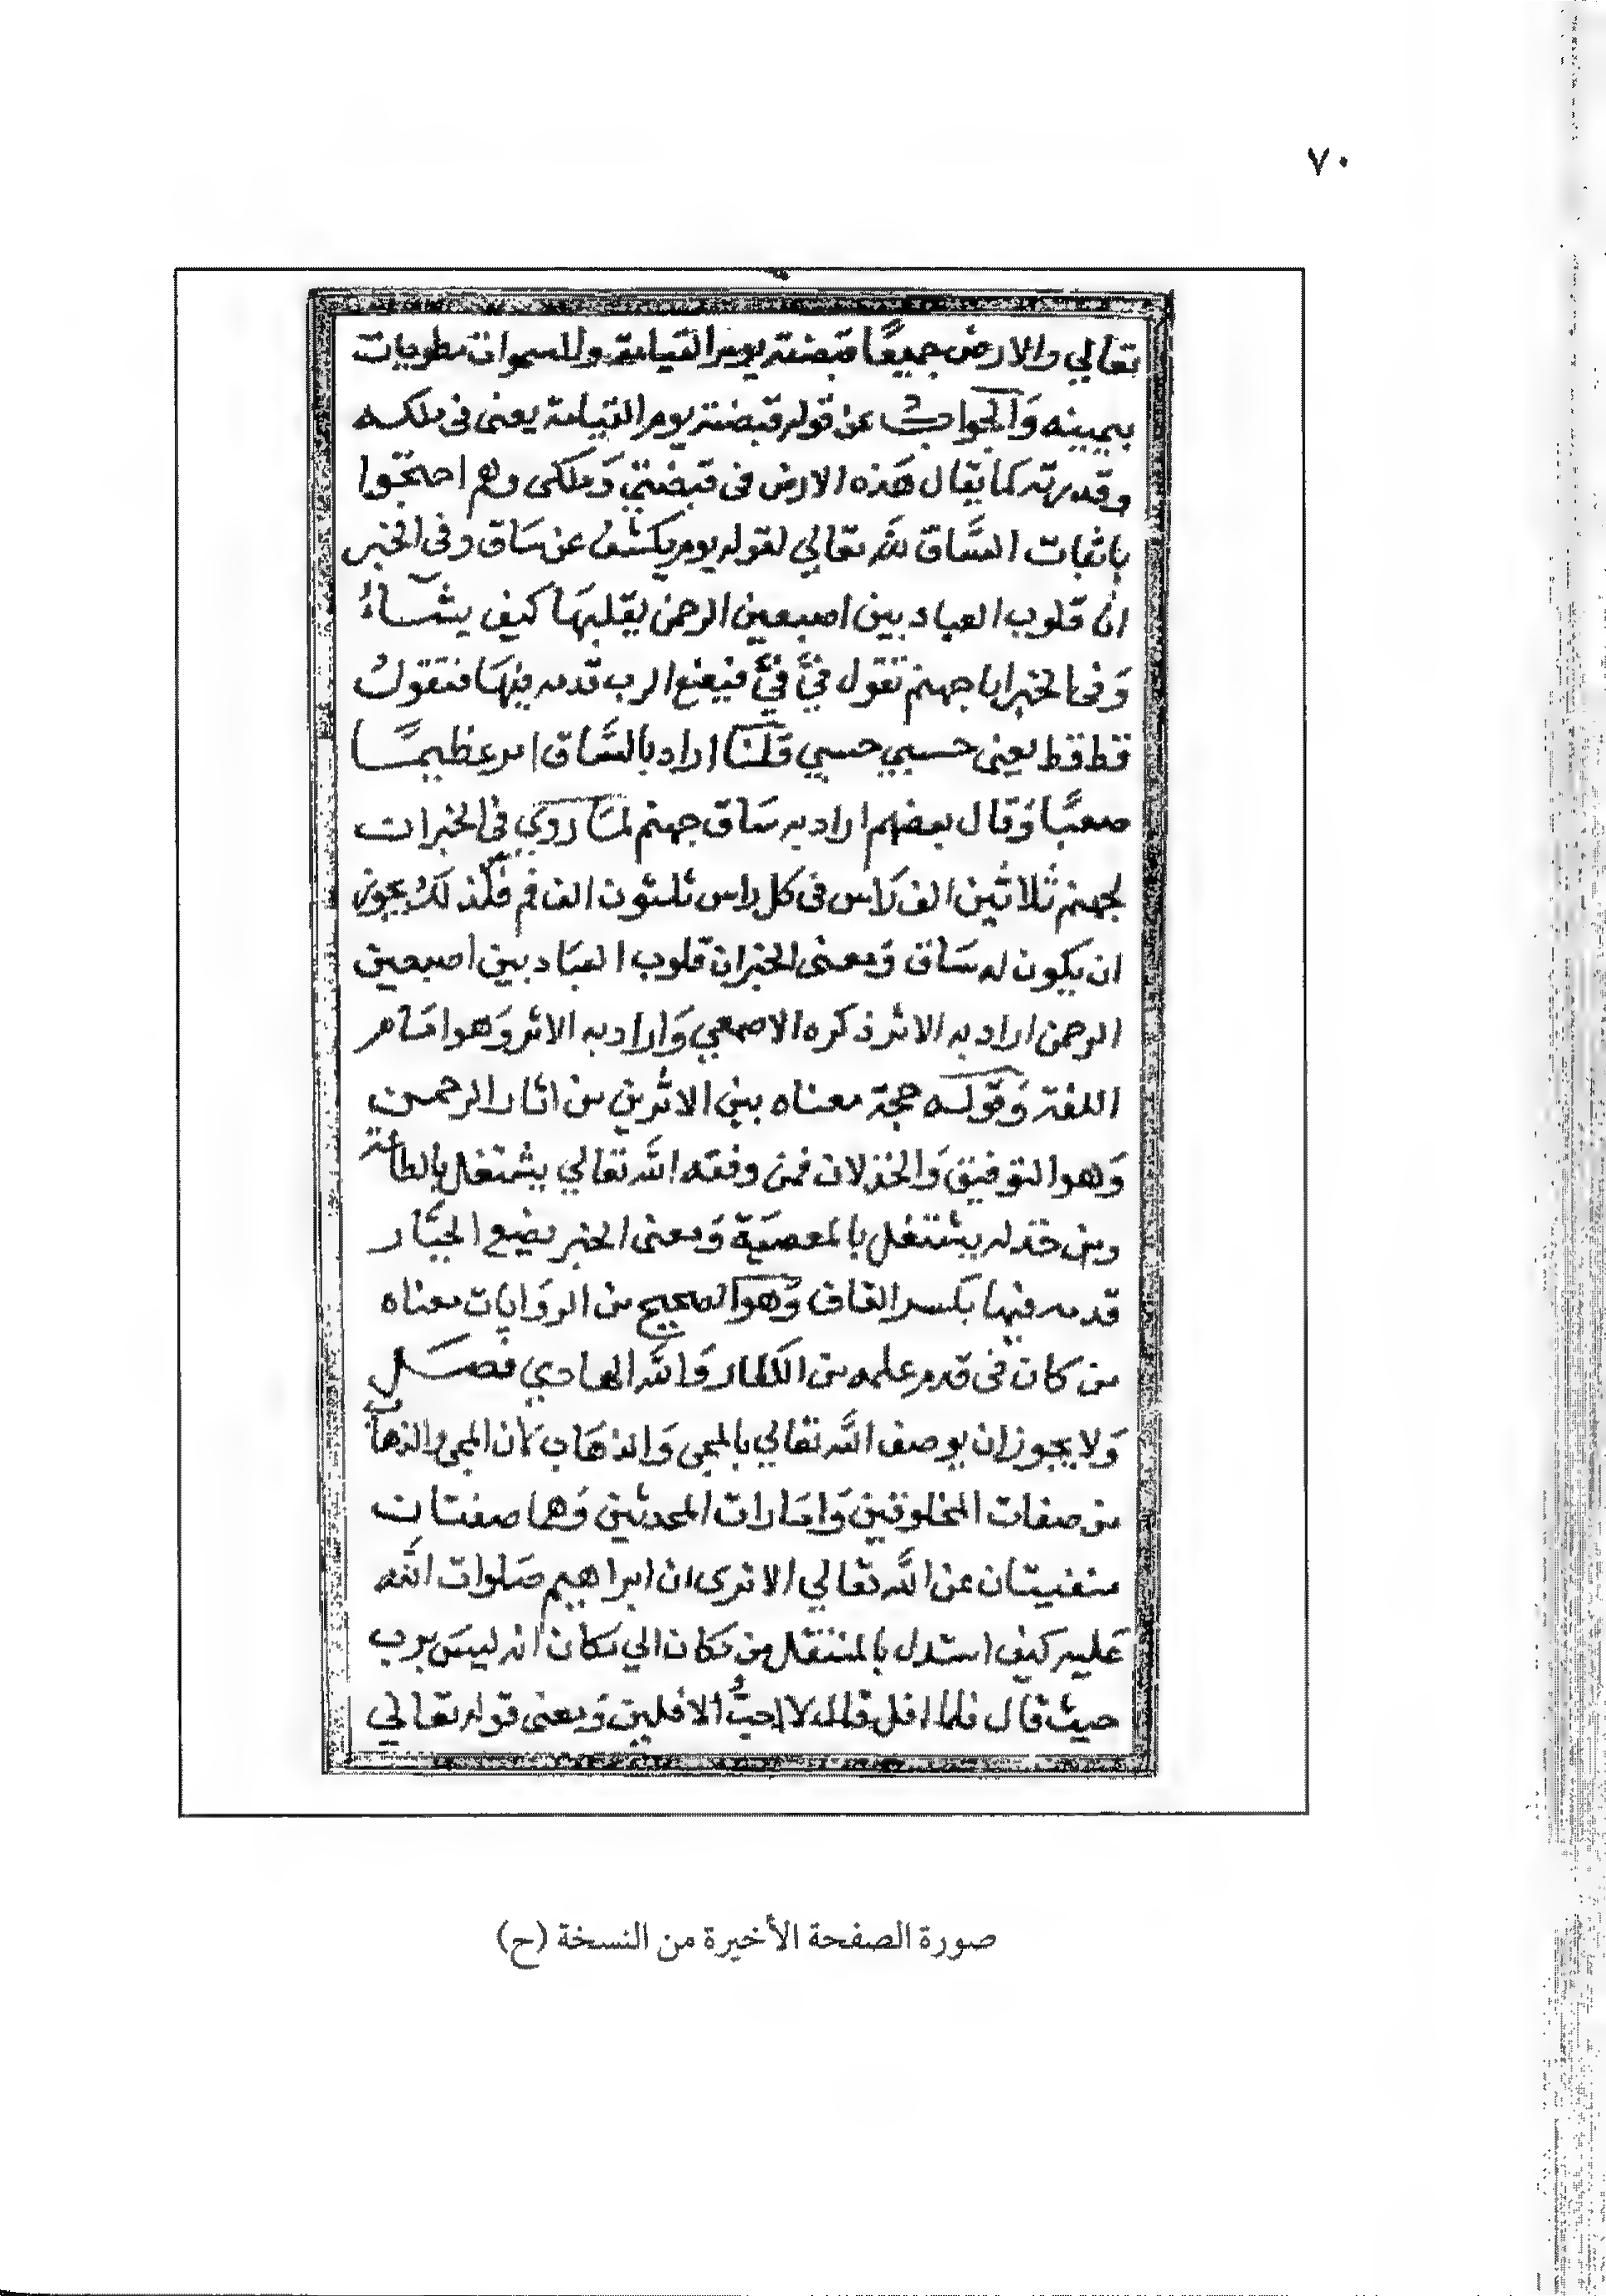 ٧٠
تعالي والارض جميعًا قبضته يوم القيامة والسموات مطويات
بيمينه وَالجواب عن قوله قبضته يوم القيامة يعنى فى ملكه
وقدرته كما يقال هَذه الارض فى قبضتي وَملكى وهم احتجّوا
باثبات السَّاق لله تعالي لقوله يوم يكشف عن سَاق وفى الخبر
انّ قلوب العباد بين اصبعين الرحمن يقلبهَا كيف يشآءُ
وَفى الخبر ايا جهنم تقول فيَّ فيَّ فيضع الرب قدمه فيهَا فتقول
قط قط يعنى حسبي حسبي قلنا اراد بالسَّاق امر عظيمًا
صعبًا وَقال بعضهم اراد به سَاق جهنم لمَا روي فى الخبر ان
لجهنم ثلاثين الف رَاس فى كل راس ثلثون الف فم فلذلك يجوز
ان يكون له سَاق وَمعنى الخبر ان قلوب العبَاد بين اصبعين
الرحمن اراد به الاثر ذكره الاصمعي وَاراد به الاثر وَهو امَام
اللغة وَقوله حجة معناه بين الاثرين من اثار الرحمن
وَهو التوفيق وَالخذلان فمن وفقه الله تعالي يشتغل بالطاعة
ومن خذله يشتغل بالمعصيَة وَمعنى الخبر يضع الجبَّار
قدمه فيها بكسر القاف وَهو الصحيح من الروَايات معناه
من كان فى قدم علمه من الكفار وَالله الهادي فصل
وَلا يجوز ان يوصف الله تعالي بالمجى وَالذهَاب لان المجى والذهاب
من صفات المخلوقين وَامَارات المحدثين وَهما صفتان
منفيتان عن الله تعالي الا ترى ان ابراهيم صَلوات الله
عَليه كيف استدل بالمنتقل من مكان الي مكان انه ليسَ برب
حيث قال فلما افل قال لا احبُّ الافلين وَمعنى قوله تعالي
صورة الصفحة الأخيرة من النسخة (ح)